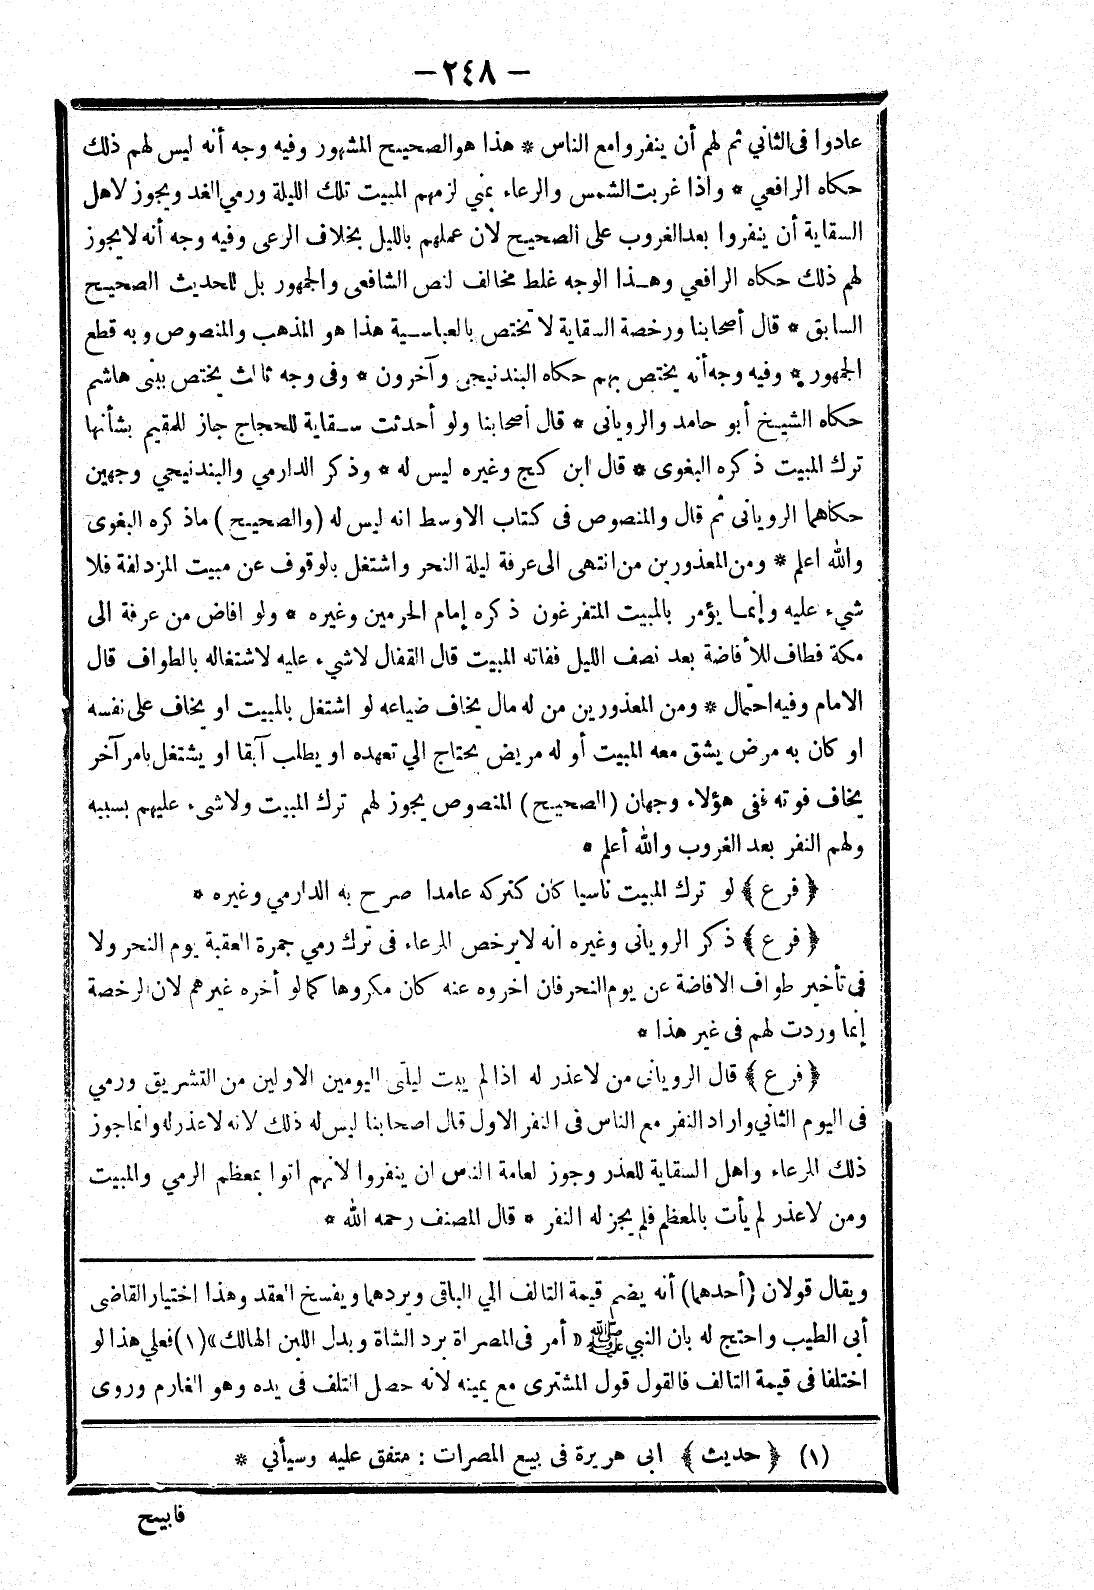 - ٢٤٨ -
عادوا فى الثاني ثم لهم أن ينفروا مع الناس * هذا هو الصحيح المشهور وفيه وجه أنه ليس لهم ذلك
حكاه الرافعي * واذا غربت الشمس والرعاء بمني لزمهم المبيت تلك الليلة ورمي الغد ويجوز لاهل
السقاية أن ينفروا بعد الغروب على الصحيح لان عملهم بالليل بخلاف الرعى وفيه وجه أنه لا يجوز
لهم ذلك حكاه الرافعي وهـذا الوجه غلط مخالف لنص الشافعى والجمهور بل للحديث الصحيح
السابق * قال أصحابنا ورخصة السقاية لا تختص بالعباسـية هذا هو المذهب والمنصوص وبه قطع
الجمهور * وفيه وجه أنه يختص بهم حكاه البندنيجى وآخرون * وفى وجه ثالث يختص ببنى هاشم
حكاه الشيخ أبو حامد والرويانى * قال أصحابنا ولو أحدثت سـقاية للحجاج جاز للمقيم بشأنها
ترك المبيت ذكره البغوى * قال ابن كج وغيره ليس له * وذكر الدارمي والبندنيجي وجهين
حكاهما الرويانى ثم قال والمنصوص فى كتاب الاوسط انه ليس له (والصحيح) ماذكره البغوى
والله اعلم * ومن المعذورين من انتهى الى عرفة ليلة النحر واشتغل بالوقوف عن مبيت المزدلفة فلا
شيء عليه وإنمـا يؤمر بالمبيت المتفرغون ذكره إمام الحرمين وغيره * ولو افاض من عرفة الى
مكة فطاف للأفاضة بعد نصف الليل ففاته المبيت قال القفال لاشيء عليه لاشتغاله بالطواف قال
الامام وفيه احتمال * ومن المعذورين من له مال يخاف ضياعه لو اشتغل بالمبيت او يخاف على نفسه
او كان به مرض يشق معه المبيت أو له مريض يحتاج الي تعهده او يطلب آبقا او يشتغل بامر آخر
يخاف فوته ففى هؤلاء وجهان (الصحيح) المنصوص يجوز لهم ترك المبيت ولاشىء عليهم بسببه
ولهم النفر بعد الغروب والله أعلم *
﴿ فرع ﴾ لو ترك المبيت ناسيا كان كتركه عامدا صرح به الدارمي وغيره *
﴿ فرع ﴾ ذكر الرويانى وغيره انه لايرخص للرعاء فى ترك رمي جمرة العقبة يوم النحر ولا
فى تأخير طواف الافاضة عن يوم النحر فان اخروه عنه كان مكروها كما لو أخره غيرهم لان الرخصة
إنما وردت لهم فى غير هذا *
﴿ فرع ﴾ قال الرويانى من لاعذر له اذا لم يبت ليلتى اليومين الاولين من التشريق ورمي
فى اليوم الثاني واراد النفر مع الناس فى النفر الاول قال اصحابنا ليس له ذلك لانه لا عذر له وانما جوز
ذلك للرعاء واهل السقاية للعذر وجوز لعامة الناس ان ينفروا لانهم اتوا بمعظم الرمي والمبيت
ومن لاعذر لم يأت بالمعظم فلم يجز له النفر * قال المصنف رحمه الله *
ويقال قولان (أحدهما) أنه يضم قيمة التالف الي الباقى ويردهما ويفسخ العقد وهذا اختيار القاضى
أبى الطيب واحتج له بان النبي ﷺ « أمر فى المصراة برد الشاة وبدل اللبن الهالك»(١)فعلي هذا لو
اختلفا فى قيمة التالف فالقول قول المشترى مع يمينه لانه حصل التلف فى يده وهو الغارم وروى
(١) ﴿ حديث ﴾ ابى هريرة فى بيع المصرات : متفق عليه وسيأتي *